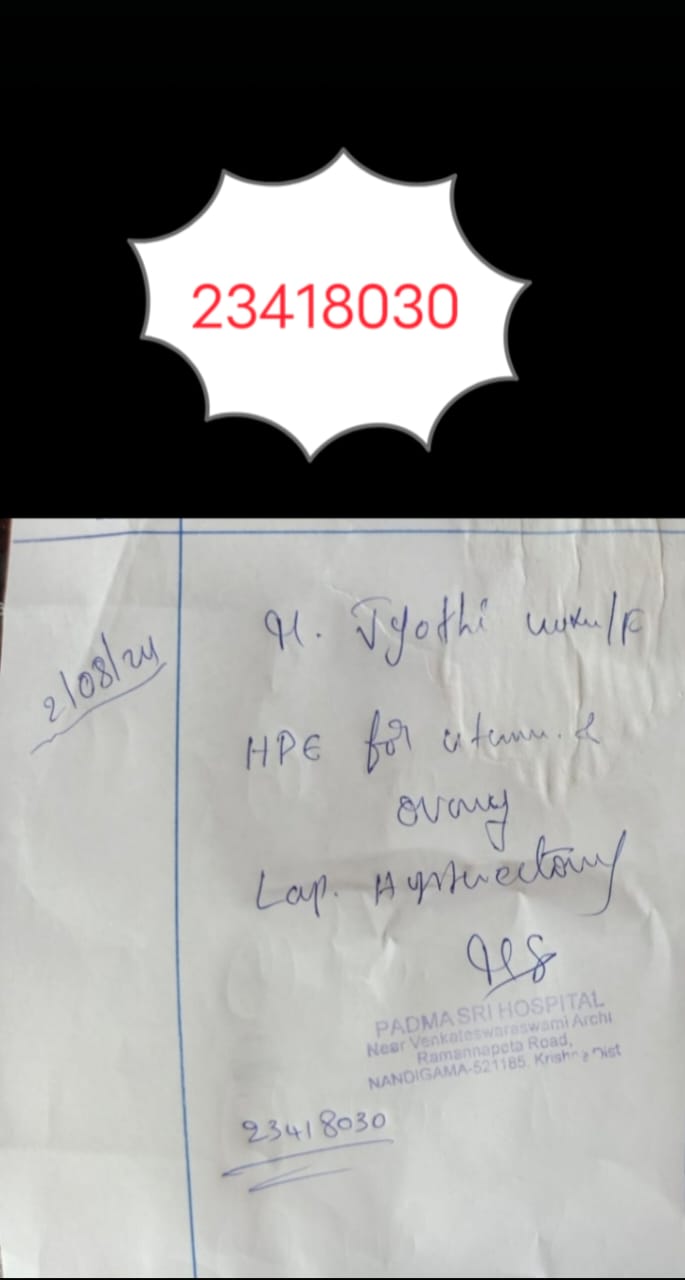 23418030
2/08/24
M. Jyothi /F
HPE for uterus &
ovary
Lap. Hysterectomy
PADMA SRI HOSPITAL
Near Venkateswaraswami Archi
Ramannapeta Road,
NANDIGAMA-521185. Krishna Dist
23418030